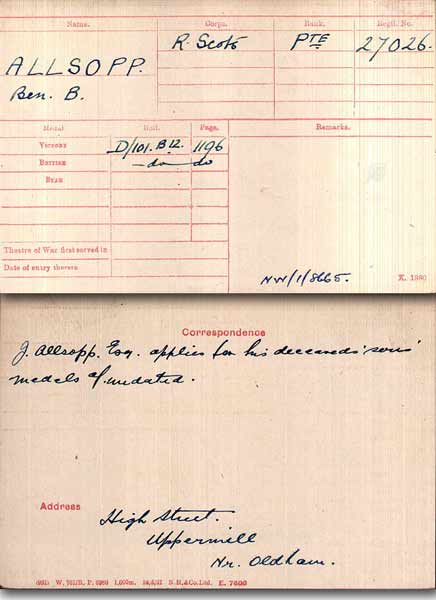 Name. Corps. Rank. Regtl. No.
ALLSOPP. R. Scots PTE 27026.
Ben. B.
Medal Roll. Page. Remarks.
VICTORY D/101. B12. 1196
BRITISH —do— do
STAR
Theatre of War first served in
Date of entry therein
NW/1/8665. K. 1380
Correspondence
J. Allsopp. Esq. applies for his deceaseds' sons'
medals undated.
Address
High Street.
Uppermill
Nr. Oldham.
1,000m. N.H.&Co.Ltd. E. 7600